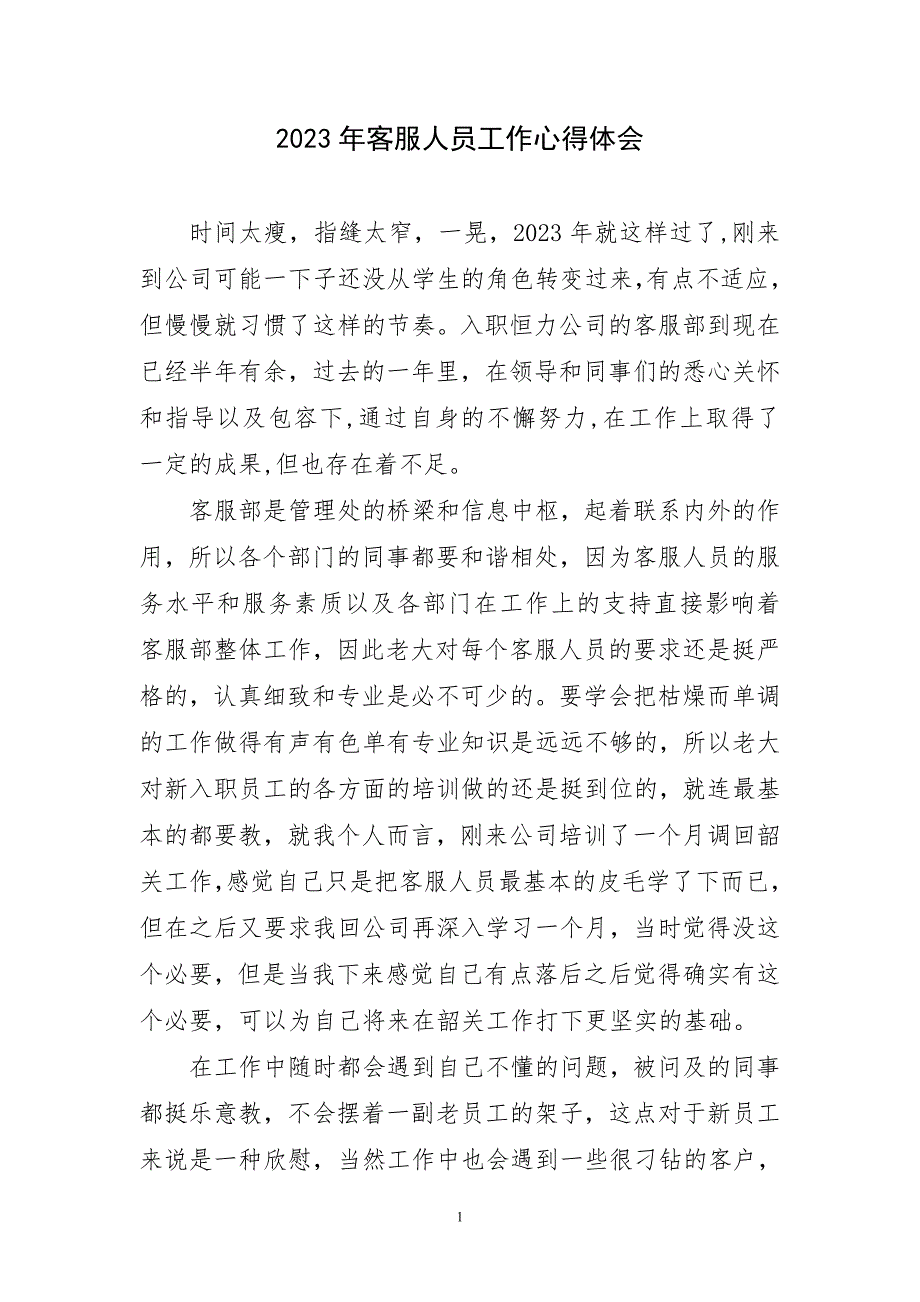 2023年客服人员工作心得体会
时间太瘦，指缝太窄，一晃，2023年就这样过了,刚来
到公司可能一下子还没从学生的角色转变过来,有点不适应,
但慢慢就习惯了这样的节奏。入职恒力公司的客服部到现在
已经半年有余，过去的一年里，在领导和同事们的悉心关怀
和指导以及包容下,通过自身的不懈努力,在工作上取得了
一定的成果,但也存在着不足。
客服部是管理处的桥梁和信息中枢，起着联系内外的作
用，所以各个部门的同事都要和谐相处，因为客服人员的服
务水平和服务素质以及各部门在工作上的支持直接影响着
客服部整体工作，因此老大对每个客服人员的要求还是挺严
格的，认真细致和专业是必不可少的。要学会把枯燥而单调
的工作做得有声有色单有专业知识是远远不够的，所以老大
对新入职员工的各方面的培训做的还是挺到位的，就连最基
本的都要教，就我个人而言，刚来公司培训了一个月调回韶
关工作,感觉自己只是把客服人员最基本的皮毛学了下而已,
但在之后又要求我回公司再深入学习一个月，当时觉得没这
个必要，但是当我下来感觉自己有点落后之后觉得确实有这
个必要，可以为自己将来在韶关工作打下更坚实的基础。
在工作中随时都会遇到自己不懂的问题，被问及的同事
都挺乐意教，不会摆着一副老员工的架子，这点对于新员工
来说是一种欣慰，当然工作中也会遇到一些很刁钻的客户，
1